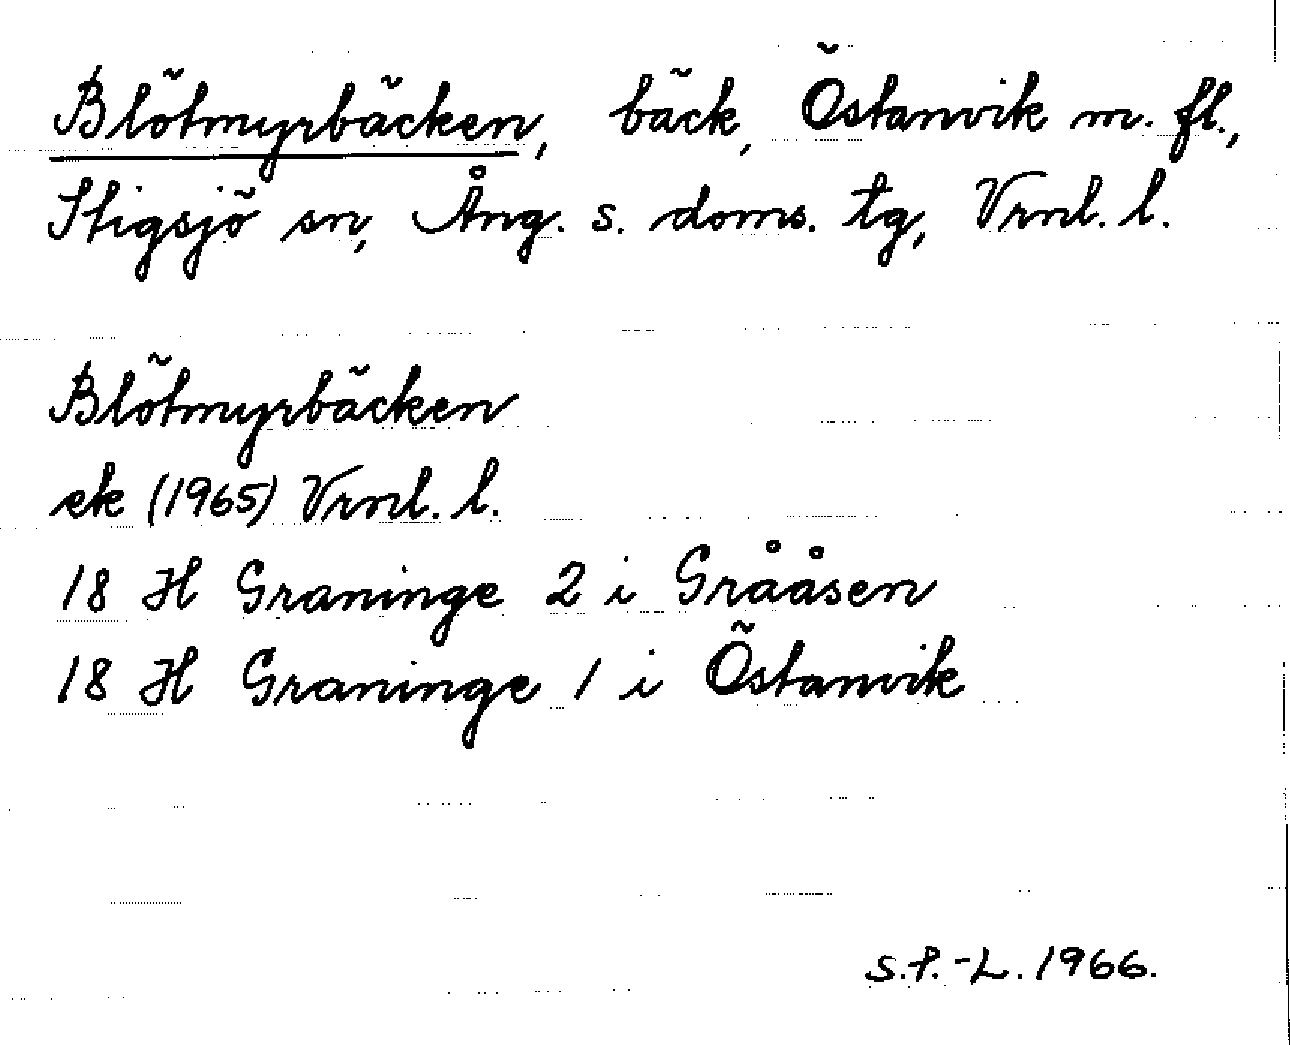 Blötmyrbäcken, bäck, Östanvik m. fl.,
Stigsjö sn, Ång. s. doms. tg, Vrnl. l.
Blötmyrbäcken
ek (1965) Vrnl. l.
18 H Graninge 2 i Grååsen
18 H Graninge 1 i Östanvik
S.P.-L. 1966.